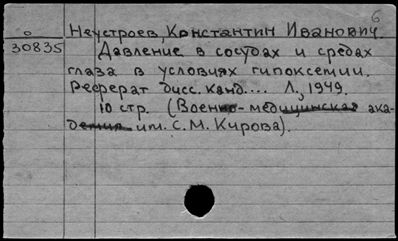 6
о Неустроев, Константин Иванович.
30835 Давление в сосудах и средах
глаза в условиях гипоксемии.
Реферат дисс. канд.... Л., 1949.
10 стр. (Военно-медицинская ака-
демия им. С. М. Кирова).